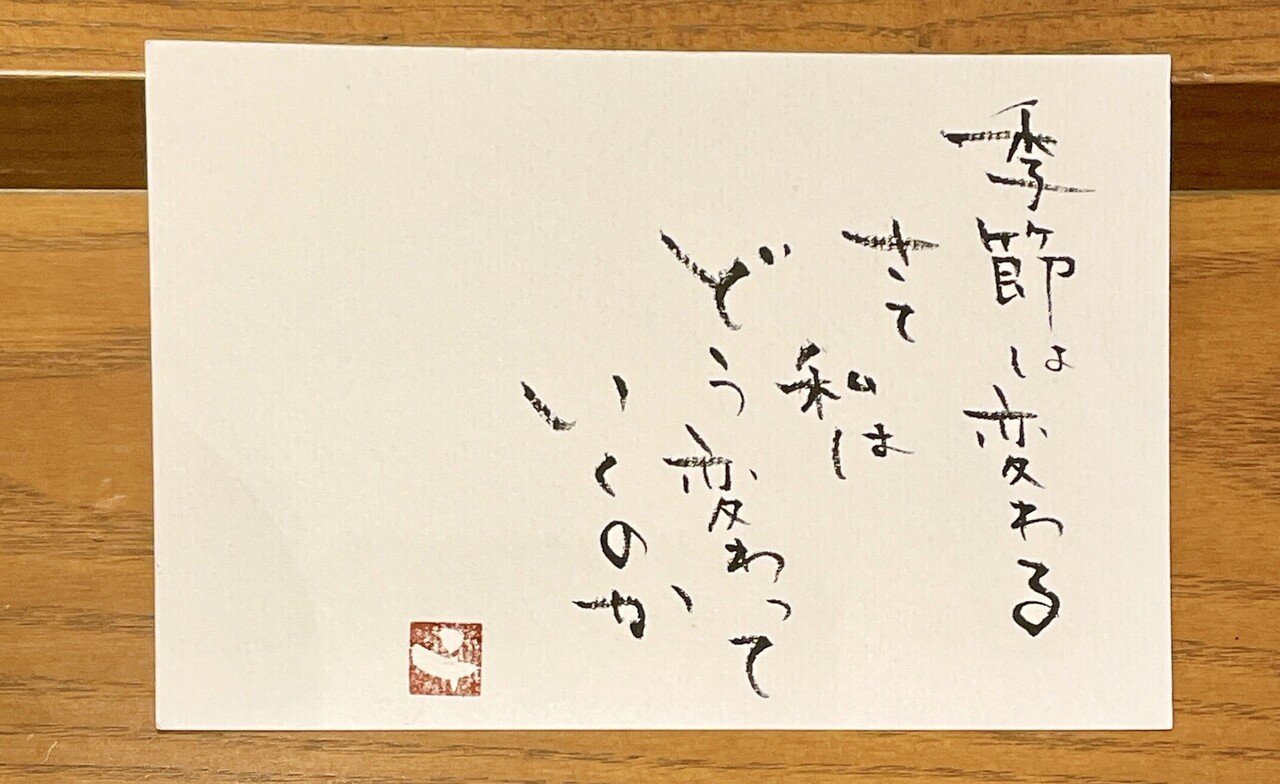 季節は変わる
さて
私は
どう変わって
いくのか